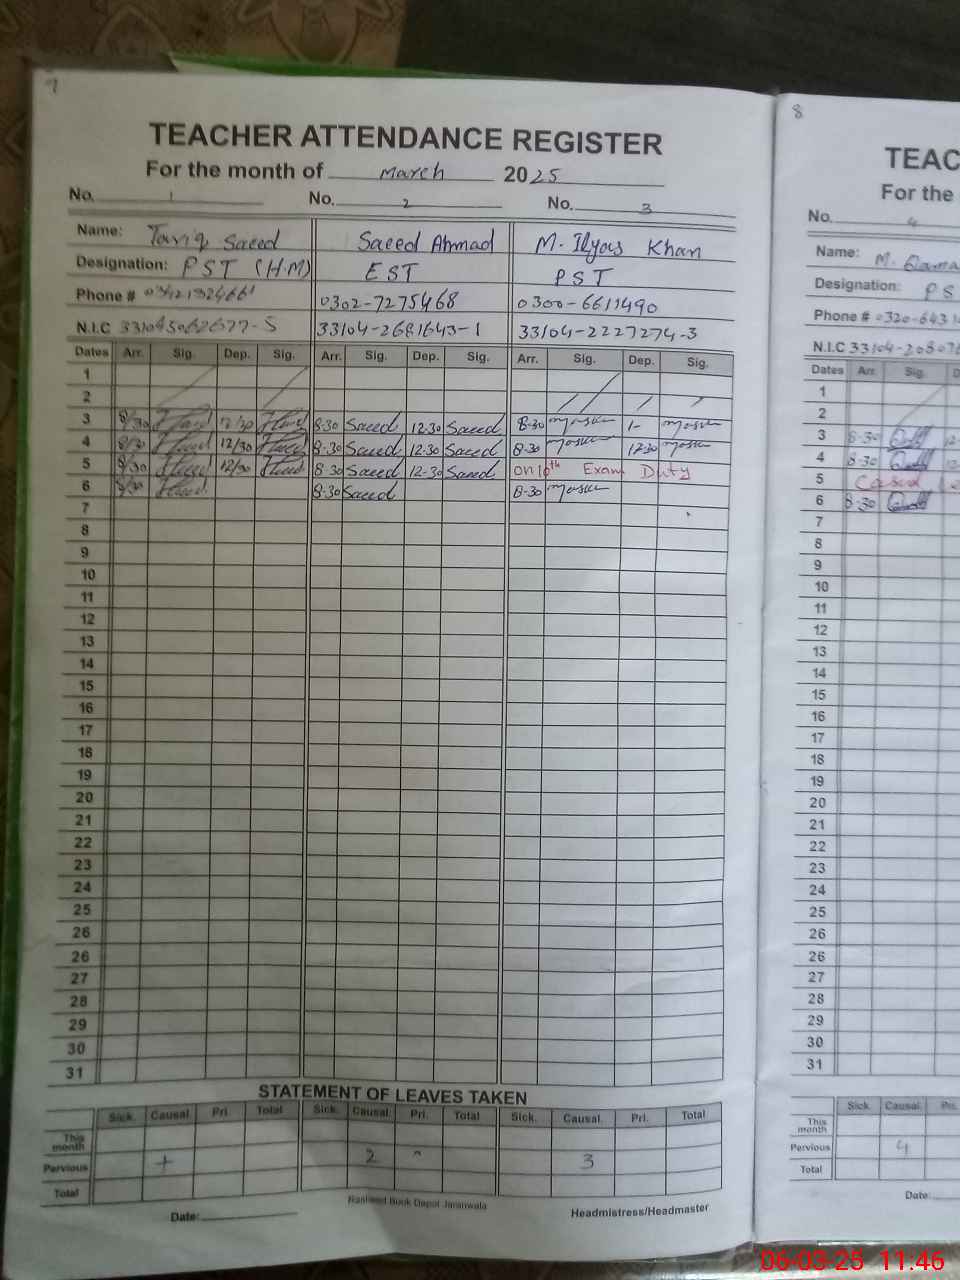 7
TEACHER ATTENDANCE REGISTER
For the month of March 2025
No. 1 No. 2 No. 3
Name: Tariq Saeed Saeed Ahmad M. Ilyas Khan
Designation: PST (H.M) EST PST
Phone # 0302-7275468 0300-6611490
N.I.C 33104-2681643-1 33104-2227274-3
Dates Arr. Sig. Dep. Sig. Arr. Sig. Dep. Sig. Arr. Sig. Dep. Sig.
1
2
3 8/30 12/30 8-30 Saeed 12-30 Saeed 8-30 1-
4 8/30 12/30 8-30 Saeed 12-30 Saeed 8-30 12-30
5 8/30 12/30 8-30 Saeed 12-30 Saeed on 10th Exam Duty
6 8/30 8-30 Saeed 8-30
7
8
9
10
11
12
13
14
15
16
17
18
19
20
21
22
23
24
25
26
26
27
28
29
30
31
STATEMENT OF LEAVES TAKEN
Sick. Causal Pri. Total Sick. Causal Pri. Total Sick. Causal Pri. Total
This month
Pervious + 2 3
Total
Date: Headmistress/Headmaster
Book Depot Jaranwala
8
TEAC
For the
No. 4
Name: M.
Designation: PS
Phone # 0320-643
N.I.C 33104-20
Dates Arr. Sig. D
1
2
3 8-30 12-
4 8-30
5 Casual
6 8-30
7
8
9
10
11
12
13
14
15
16
17
18
19
20
21
22
23
24
25
26
26
27
28
29
30
31
Sick. Causal Pri.
This month
Pervious 4
Total
Date:
06-03-25 11:46